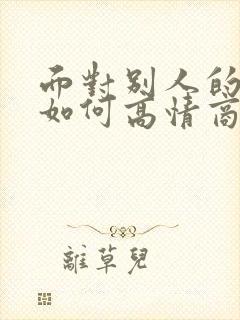 而對別人的
如何高情商
離草兒